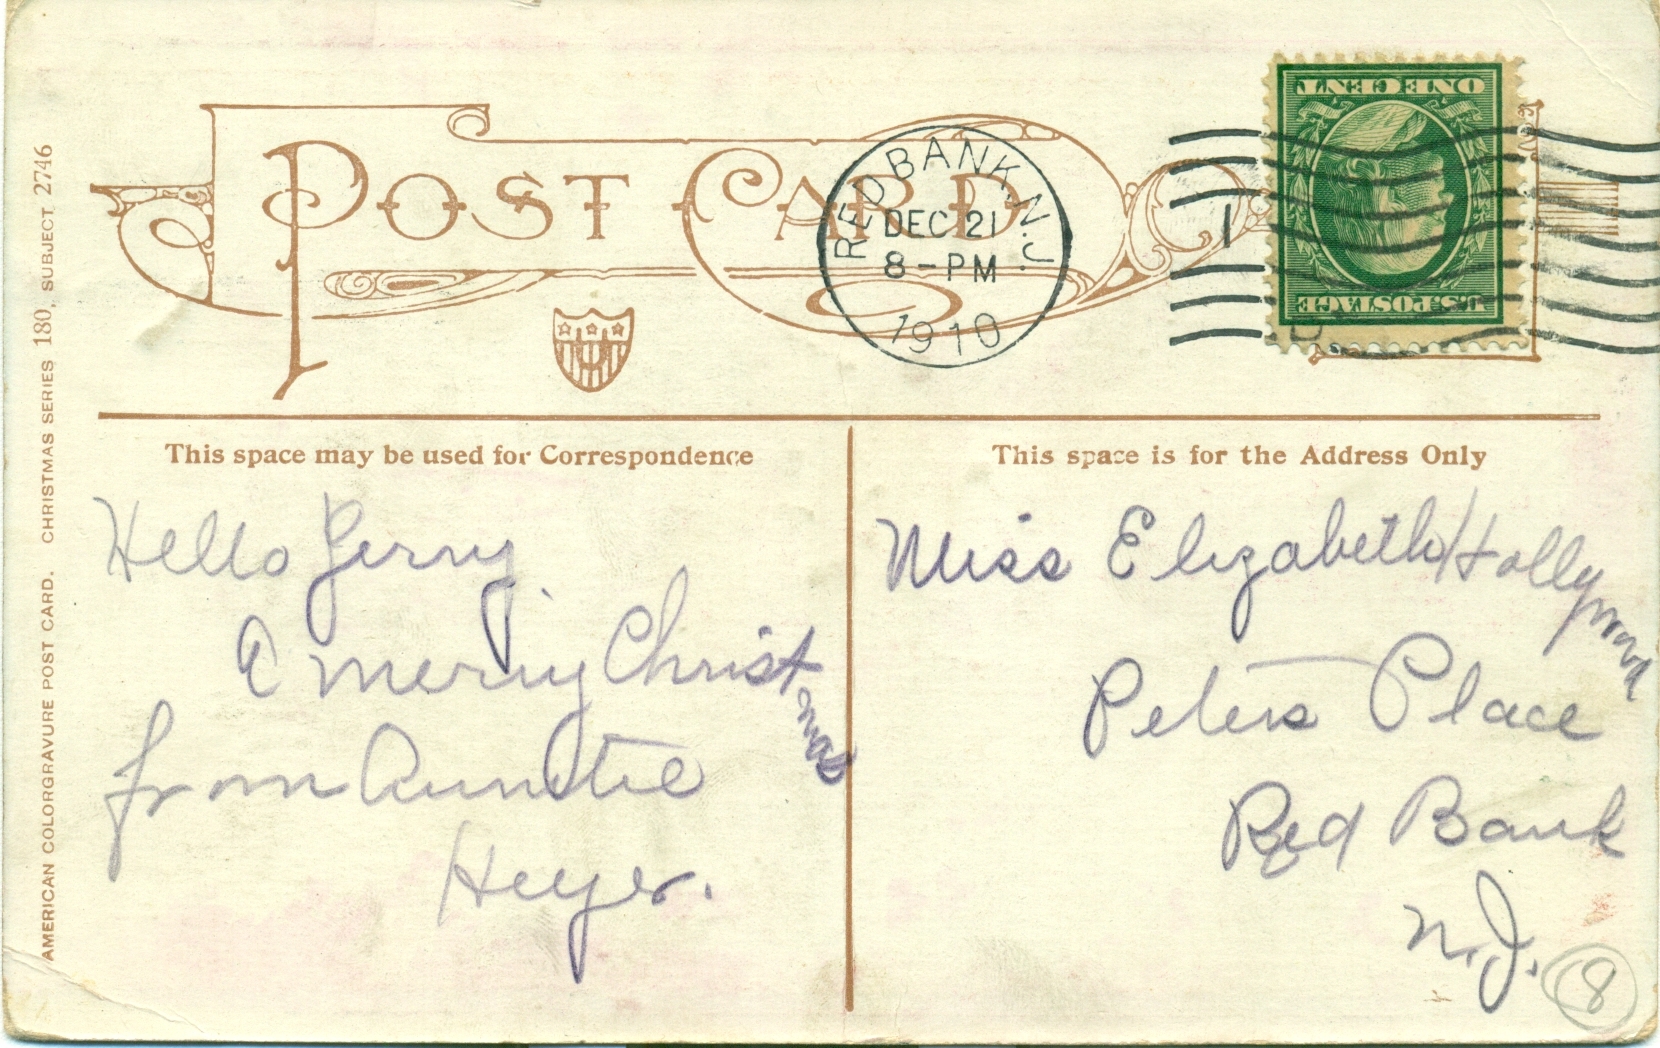 POST CARD
RED BANK, N.J.
DEC 21
8-PM
1910
1
ONE CENT
U.S. POSTAGE
AMERICAN COLORGRAVURE POST CARD. CHRISTMAS SERIES 180, SUBJECT 2746
This space may be used for Correspondence
Hello Jerry
A Merry Christmas
from Auntie
Heyer.
This space is for the Address Only
Miss Elizabeth
Peters Place
Red Bank
N.J.
8